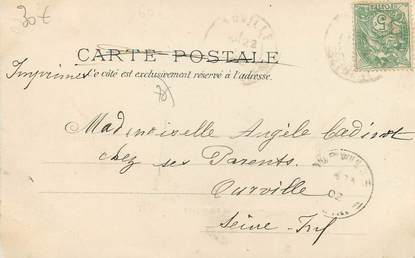 30t
CARTE POSTALE
Imprimés Ce côté est exclusivement réservé à l'adresse.
Mademoiselle Angèle Cadinot
chez ses Parents.
Ourville
Seine-Inf
02
5